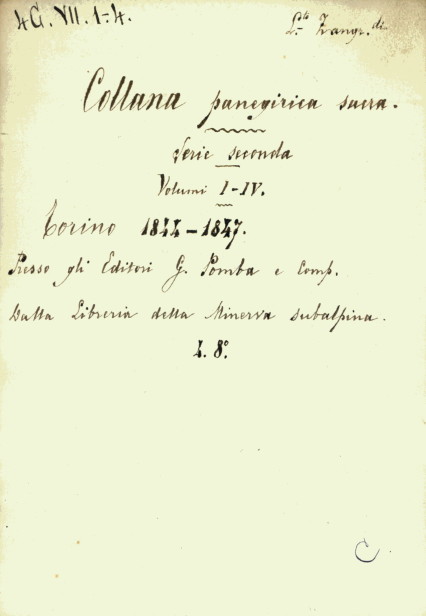 4G. VII. 1-4.
L.to Zangr.di
Collana panegirica sacra.
Serie seconda
Volumi I-IV.
Torino 1844-1847.
Presso gli Editori G. Pomba e Comp.
Dalla Libreria della Minerva subalpina.
4. 8°.
C